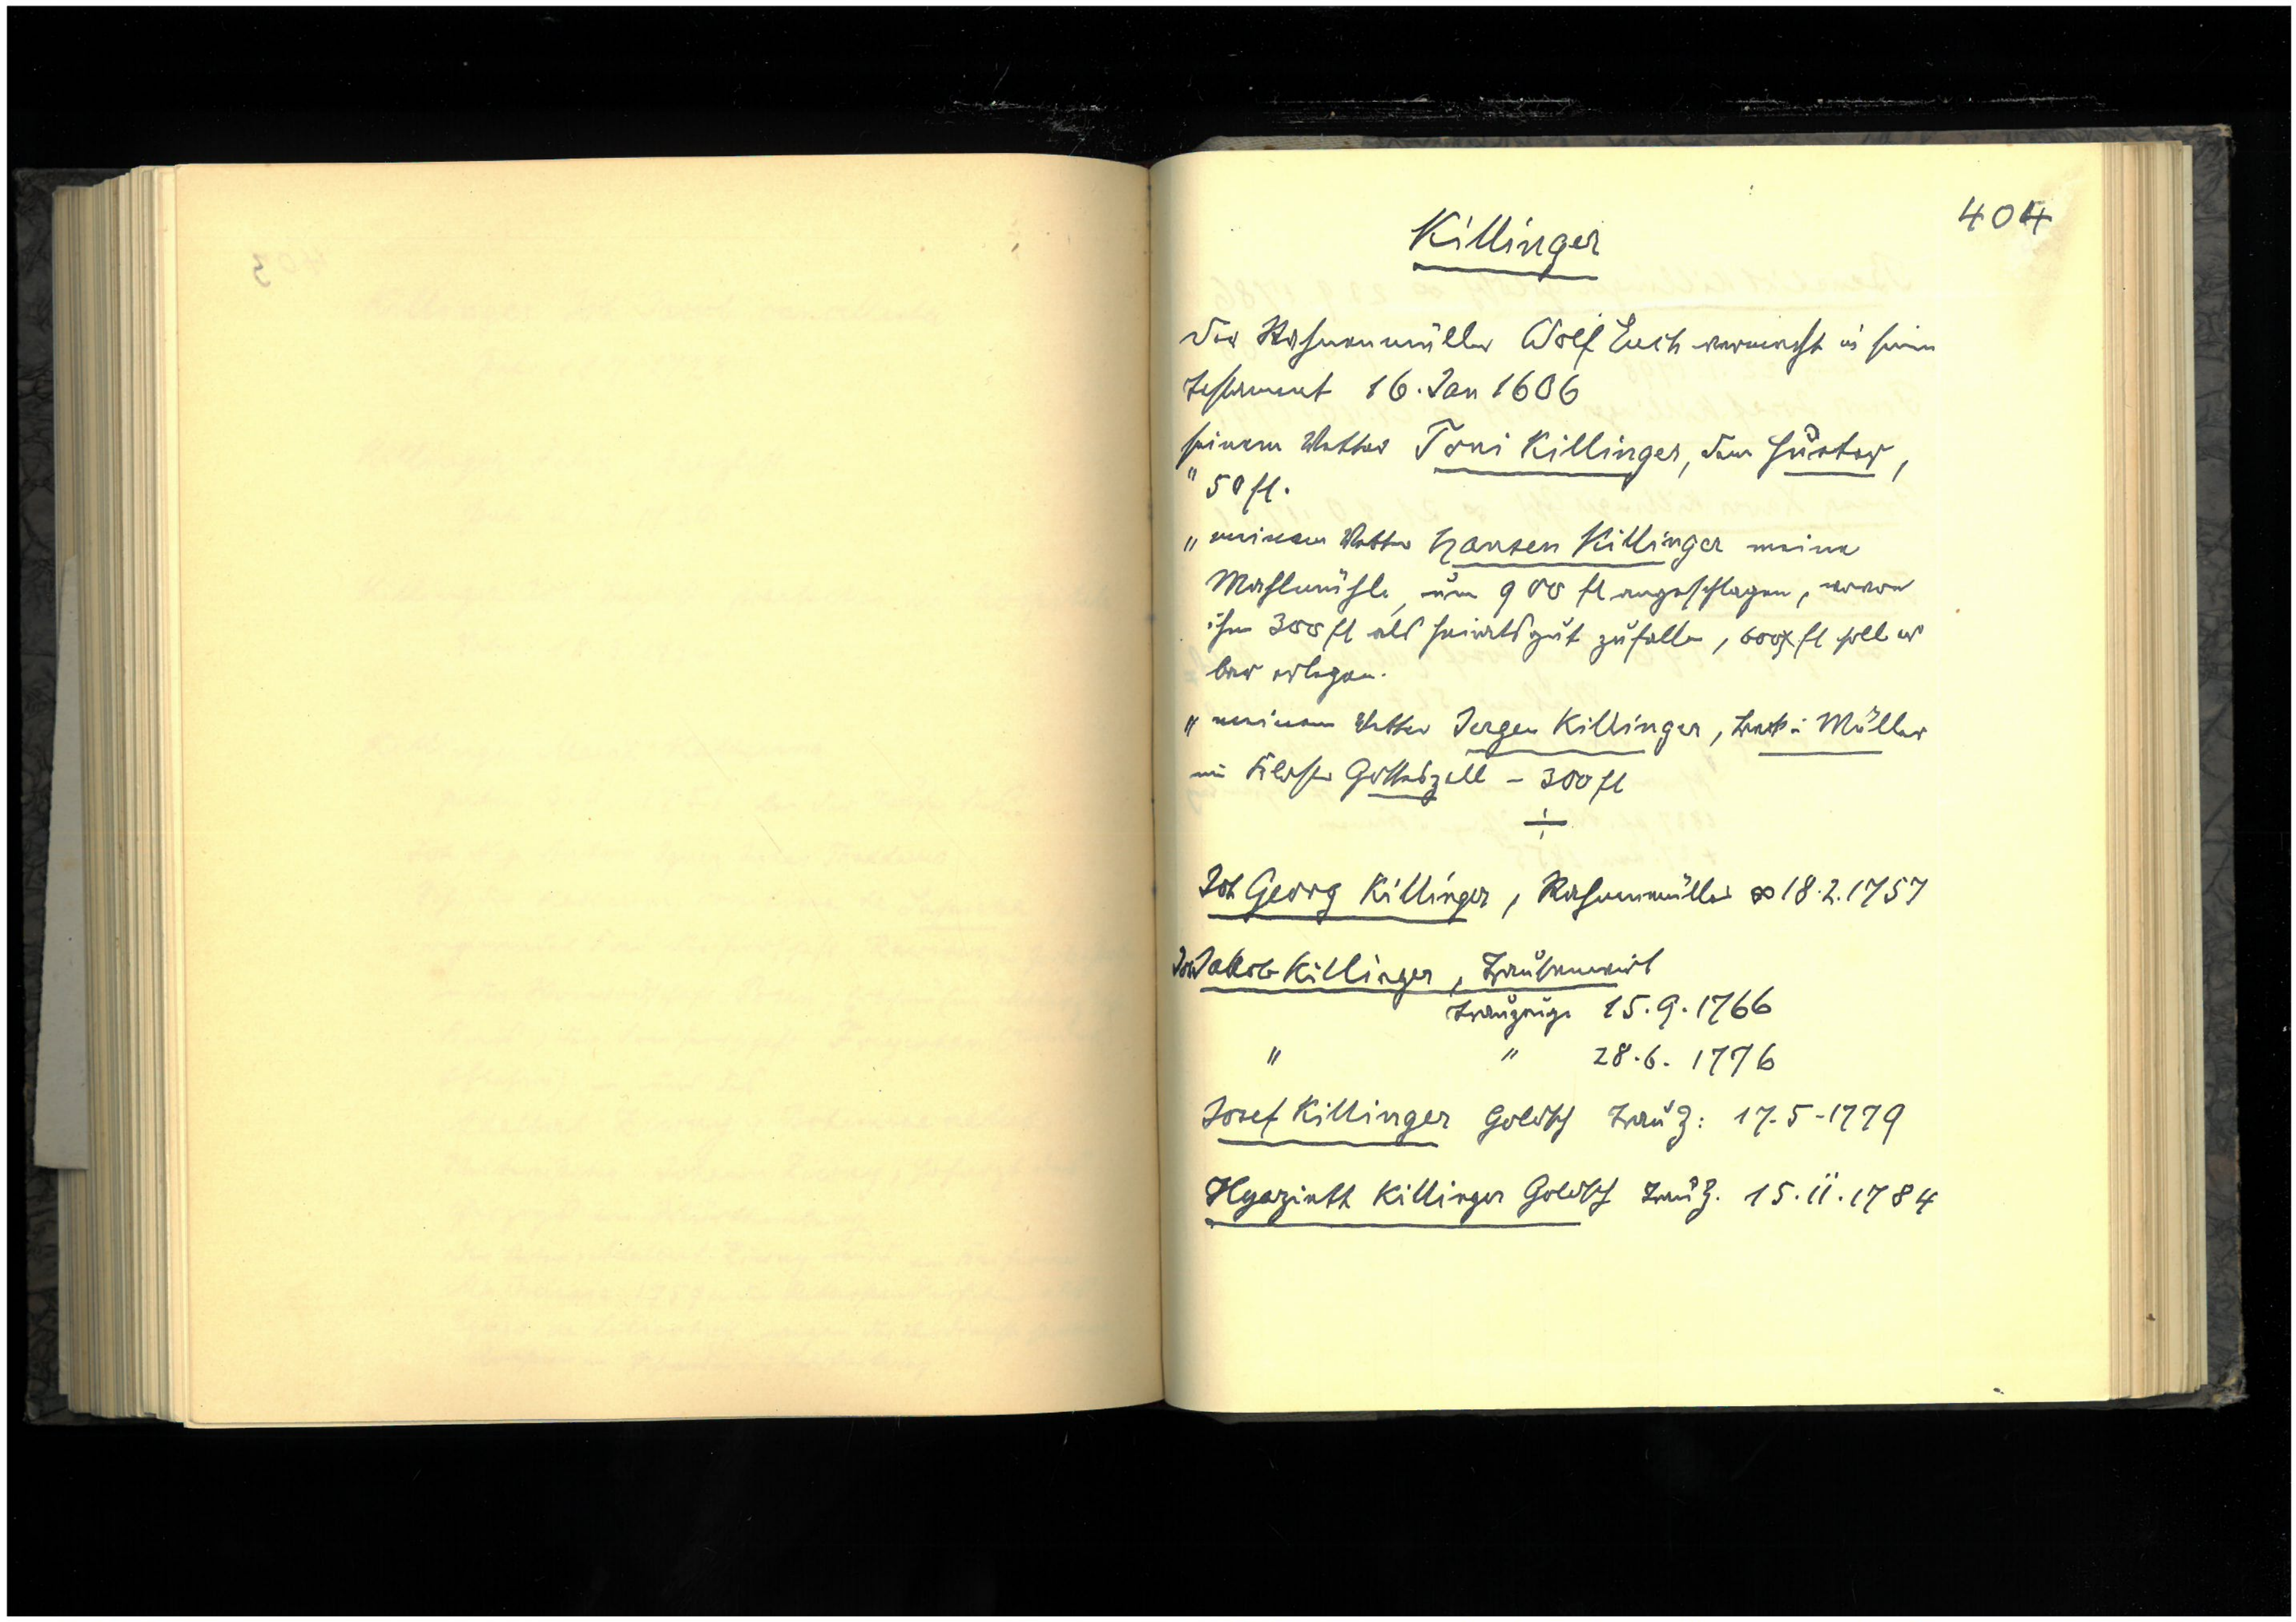 404
Killinger
Der Rahnenmüller Wolf Euch vermacht in seim
Testament 16. Jan 1606
seinem Vetter Toni Killinger, dem
" 50 fl.
" meinem Vetter Hansen Killinger meine
Mahlmühle, um 900 fl angeschlagen, wovon
ihm 300 fl als Heiratsgut zufallen, 600 fl soll er
bar erlegen.
" meinem Vetter Jergen Killinger, Müller
im Kloster Gotteszell - 300 fl
Joh Georg Killinger, Rahnenmüller ∞ 18.2.1757
Joh Jakob Killinger, Traubenwirt
Trauzeuge 15.9.1766
" " 28.6. 1776
Josef Killinger Goldsch TrauZ: 17-5-1779
Hyazinth Killinger Goldsch TrauZ. 15.11.1784